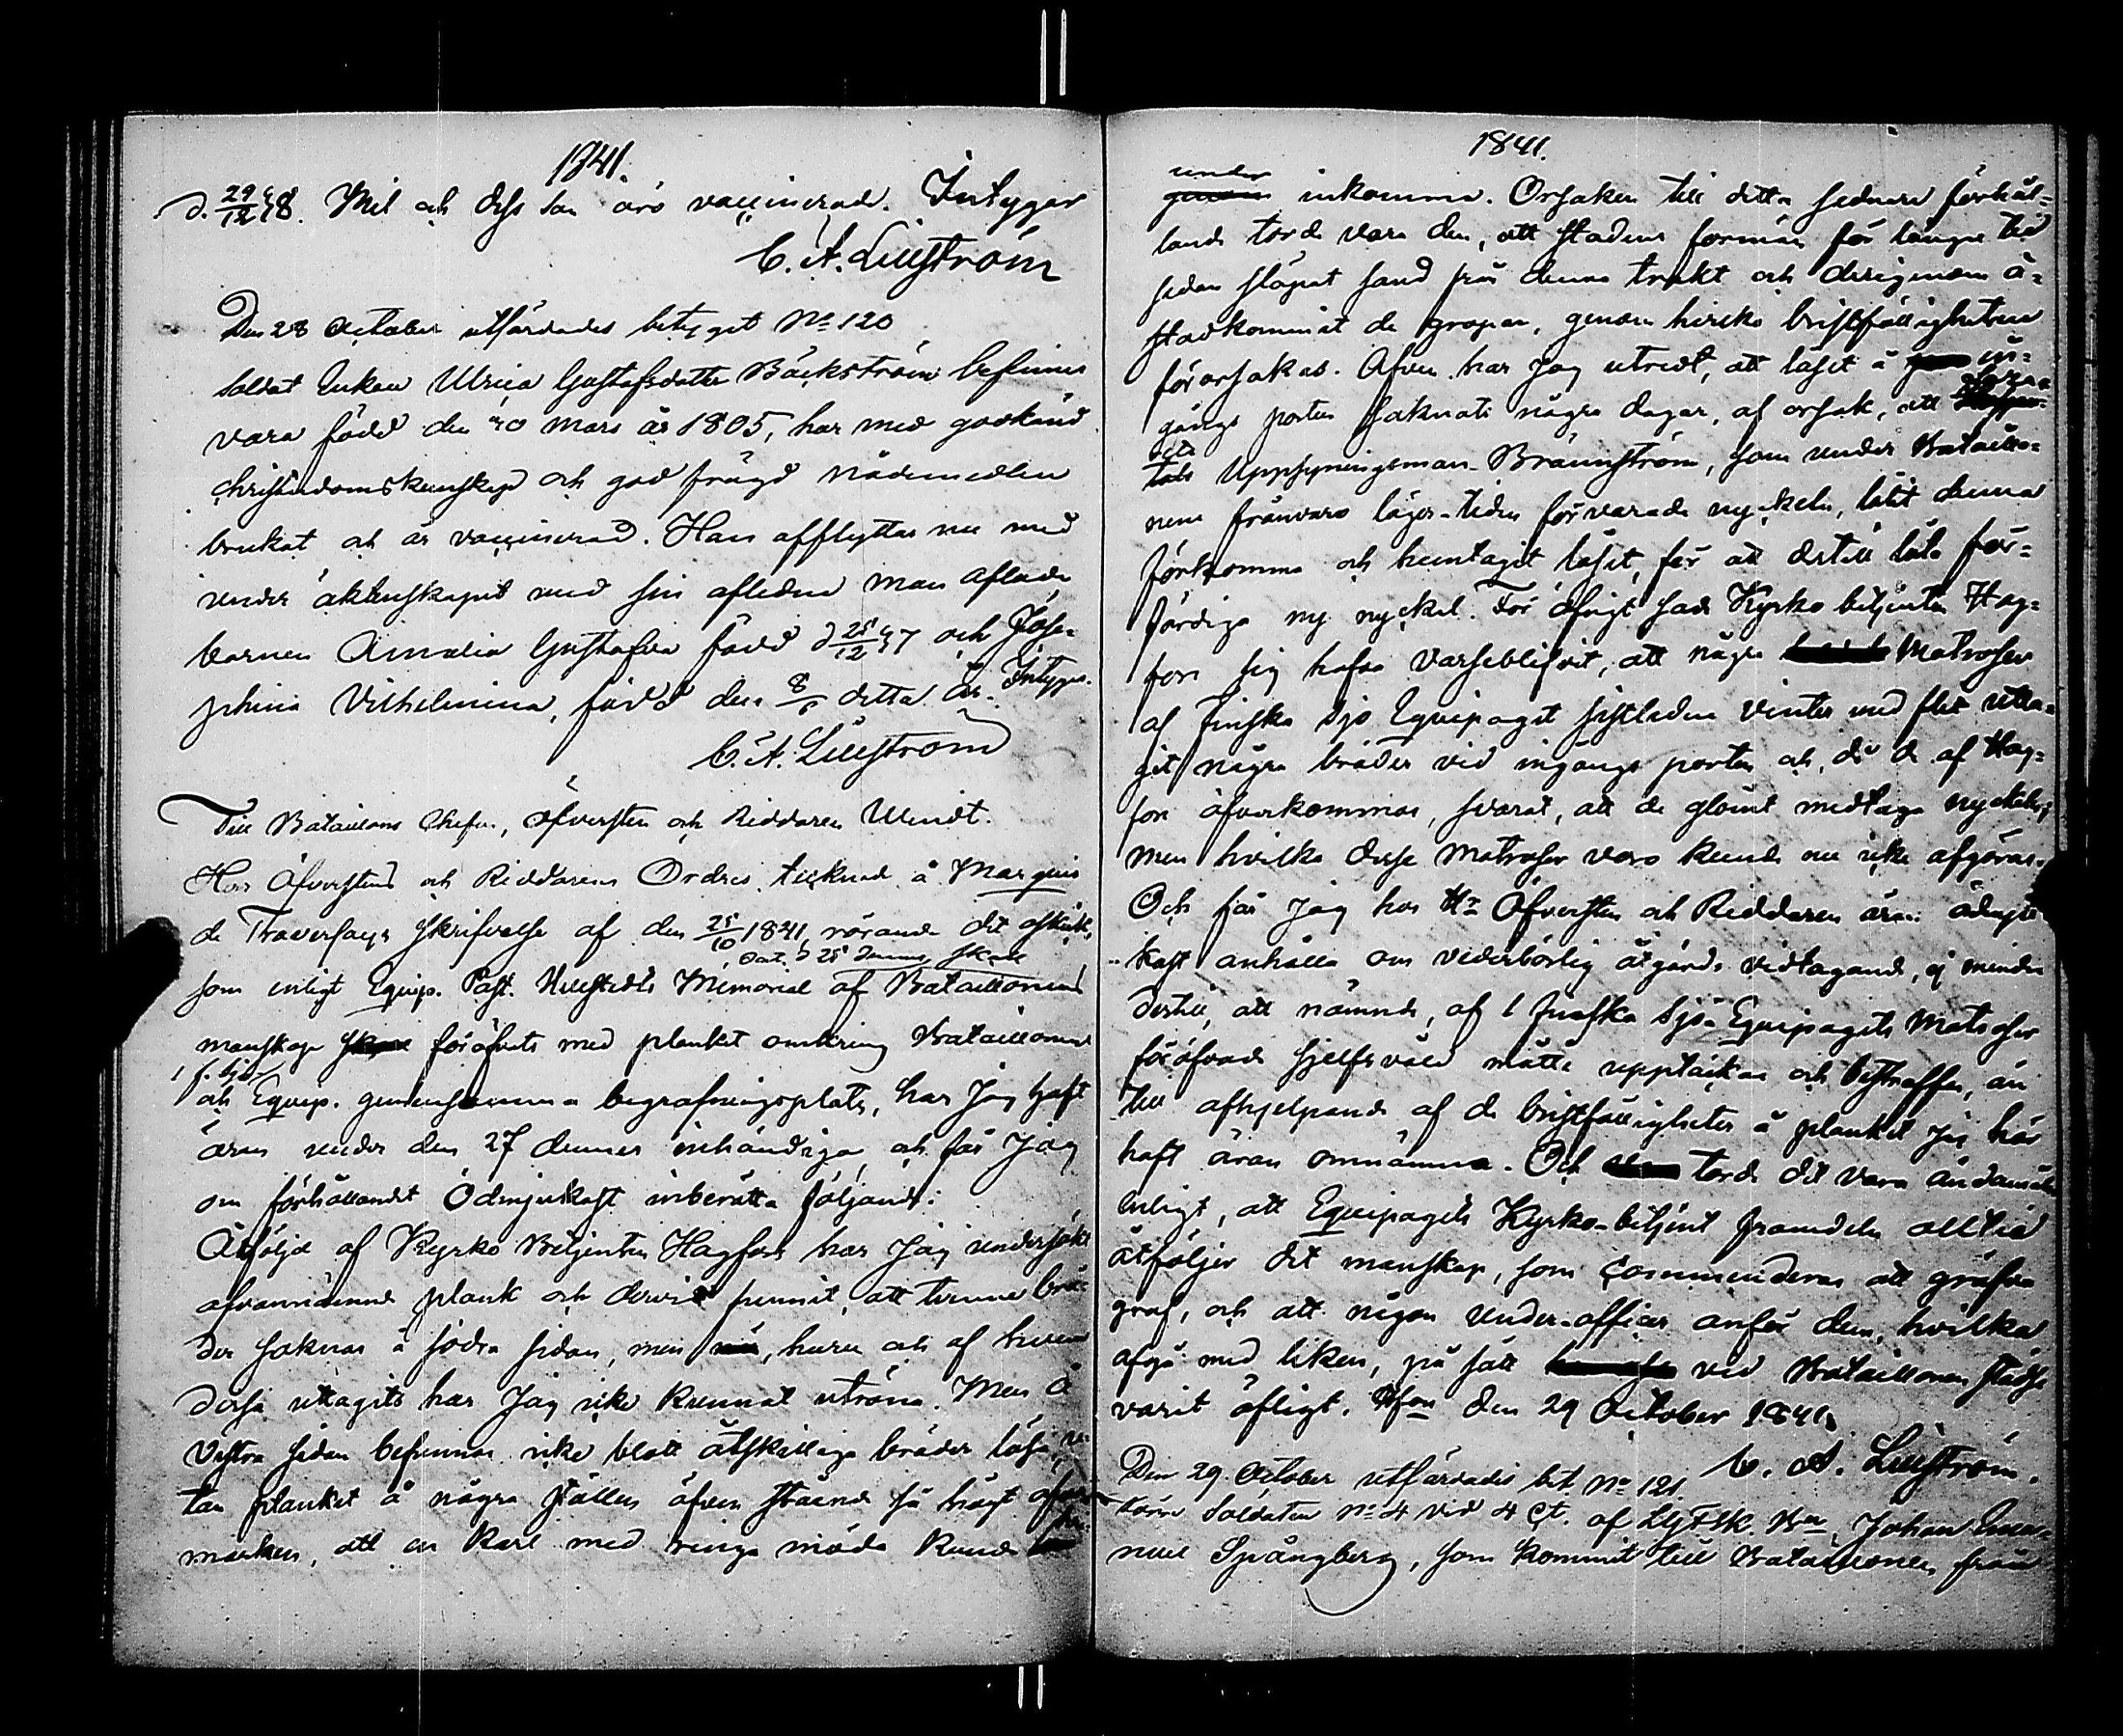 1841.
d. 29/12 48. Mel och dess son äro vaccinerade. Intygar
C. A. Lillström
Den 28 October utfärdades betyget No 120
Soldat Enkan Ulrica Gustafsdotter Bäckström befinnes
vara född den 20 Mars år 1805, har med godkänd
christendomskunskap och god frägd nådemedlen
brukat och är vaccinerad. Hon afflyttar nu med
under äktenskapet med sin aflidne man aflade
barnen Amalia Gustafva född d 25/12 37 och Jose-
phina Vilhelmina, född den 8/ detta år. Intygar
C. A. Lillström
Till Bataillons Chefen, Öfversten och Riddaren Wendt.
Herr Öfverstens och Riddarens Ordres tecknad å Marquis
de Traversays skrifvelse af den 25/10 1841, rörande det åverkan
Dat. d 25 dennes skall
som enligt Equip. Past. Millstedts Memorial af Bataillonens
manskap föröfvats med planket omkring Bataillonens
1 f. Sjö
och Equip. gemensamma begrafningsplats, har jag haft
äran under den 27 dennes inhändiga, och får Jag
om förhållandet Ödmjukast inberätta följande:
Åtföljd af Kyrko Betjenten Hagfors har Jag undersökt
ofvannämnde plank och dervid funnit, att tvenne brä-
der saknas å södra sidan, men , huru och af hvem
dessa uttagits har Jag icke kunnat utröna. Men å
Vestra sidan befinnas icke blott åtskilliga bräder lösa, u-
tan planket å några ställen äfven stående så högt öfver
marken, att en karl med ringa möda kunde
1841.
under
inkomma. Orsaken till detta sednare förhål-
lande torde vara den, att stadens forman för längre tid
sedan släpat sand från denna trakt och derigenom å-
stadkommit de gropar, genom hvilka bristfälligheten
förorsakas. Äfven har Jag utredt, att låset å in-
gångs porten saknats några dagar, af orsak, att
Uppsyningsman Brännström, som under Bataillo-
nens frånvaro läger-tiden förvarade nyckeln, låtit denna
förkomma och hemtagit låset, för att dertill låta för-
färdiga ny nyckel. För öfrigt sade Kyrko betjenten Hag-
fors sig hafva varseblifvit, att några Matroser
af Finska Sjö Equipaget sistledne vinter med flit utta-
git några bräder vid ingångs porten och, då de af Hag-
fors öfverkommos, svarat, att de glömt medtaga nyckeln;
men hvilka desse Matroser voro kunde nu icke afgöras.
Och får jag hos Hr Öfversten och Riddaren äran ödmju-
kast anhålla om vederbörlig åtgärds vidtagande, ej mindre
dertill, att nämnde, af 1 Finska Sjö-Equipagets Matroser
föröfvade sjelfsvåld måtte upptäckas och bestraffas, än
till afhjelpande af de bristfälligheter å planket jag här
haft äran omnämna. Och torde det vara ändamåls
enligt, att Equipagets Kyrko-betjent framdeles alltid
åtföljer det manskap, som commenderas att gräfva
graf, och att någon under-officer anför dem, hvilka
afgå med liken, på sätt vid Bataillonen städse
varit öfligt. Hfors den 29 October 1841.
C. A. Lillström.
Den 29 October utfärdades bet. No 121
Soldaten No 4 vid 4 Ct. af Bn Johan Ema-
nuel Spångberg, som kommit till Bataillonen från